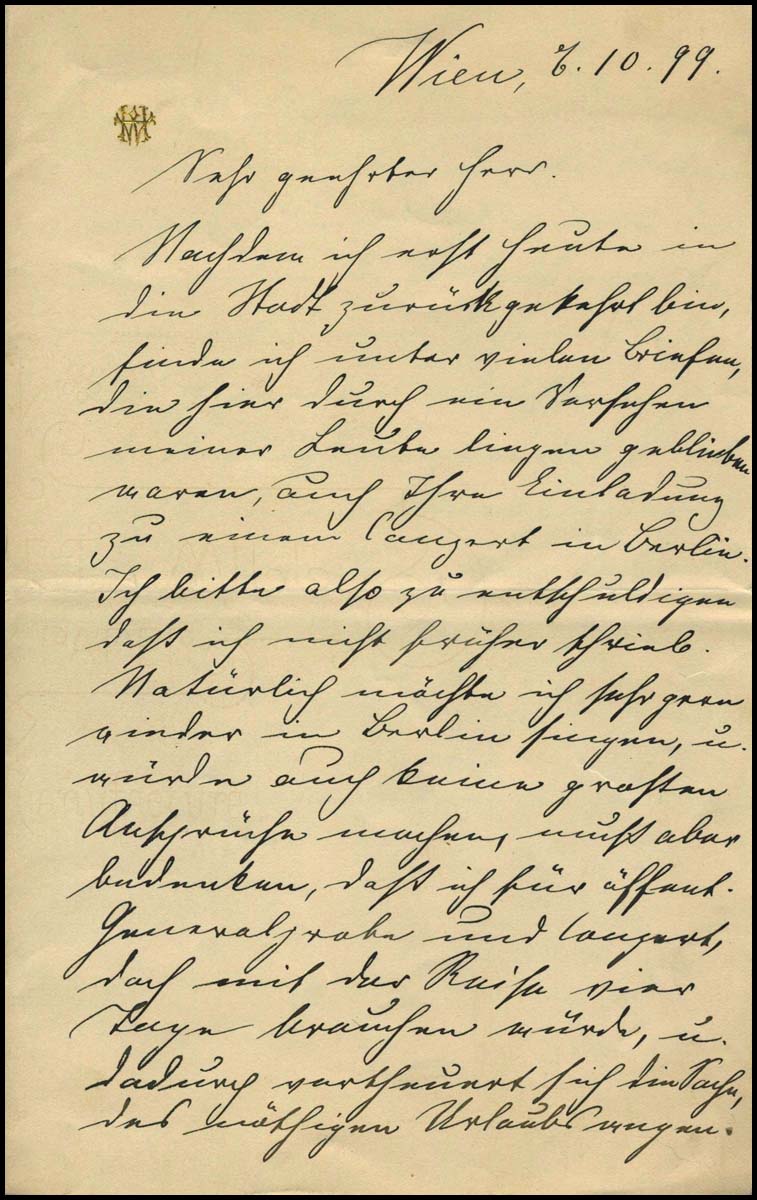 Wien, 6.10.99.
Sehr geehrter Herr.
Nachdem ich erst heute in
die Stadt zurückgekehrt bin,
finde ich unter vielen Briefen,
die hier durch ein Versehen
meiner Leute liegen geblieben
waren, auch Ihre Einladung
zu einem Conzert in Berlin.
Ich bitte also zu entschuldigen
daß ich nicht früher schrieb.
Natürlich möchte ich sehr gern
wieder in Berlin singen, u.
würde auch keine großen
Ansprüche machen, muß aber
bedenken, daß ich für öffent.
Generalprobe und Conzert,
doch mit der Reise vier
Tage brauchen würde, u.
dadurch vertheuert sich die Sache,
des nöthigen Urlaubs wegen.